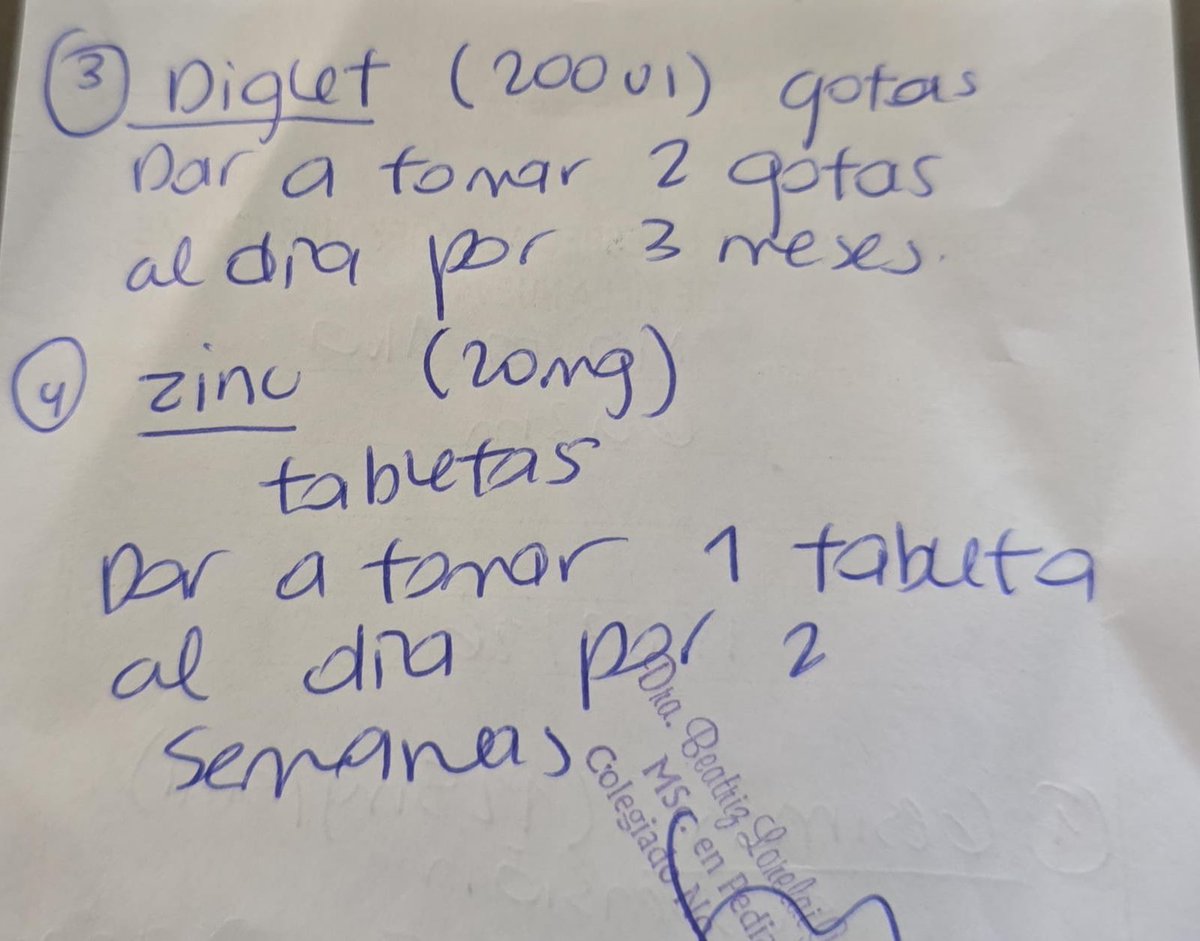 3 Diglet (200 UI) gotas
Dar a tomar 2 gotas
al dia por 3 meses.
4 zinc (20mg)
tabletas
Dar a tomar 1 tableta
al dia por 2
semanas
Dra. Beatriz Lorelai
MSc. en Pedia
Colegiado No